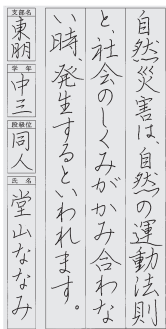 自然災害は、自然の運動法則
と、社会のしくみがかみ合わな
い時、発生するといわれます。
支部名
東朋
学年
中三
段級位
同人
氏名
堂山ななみ